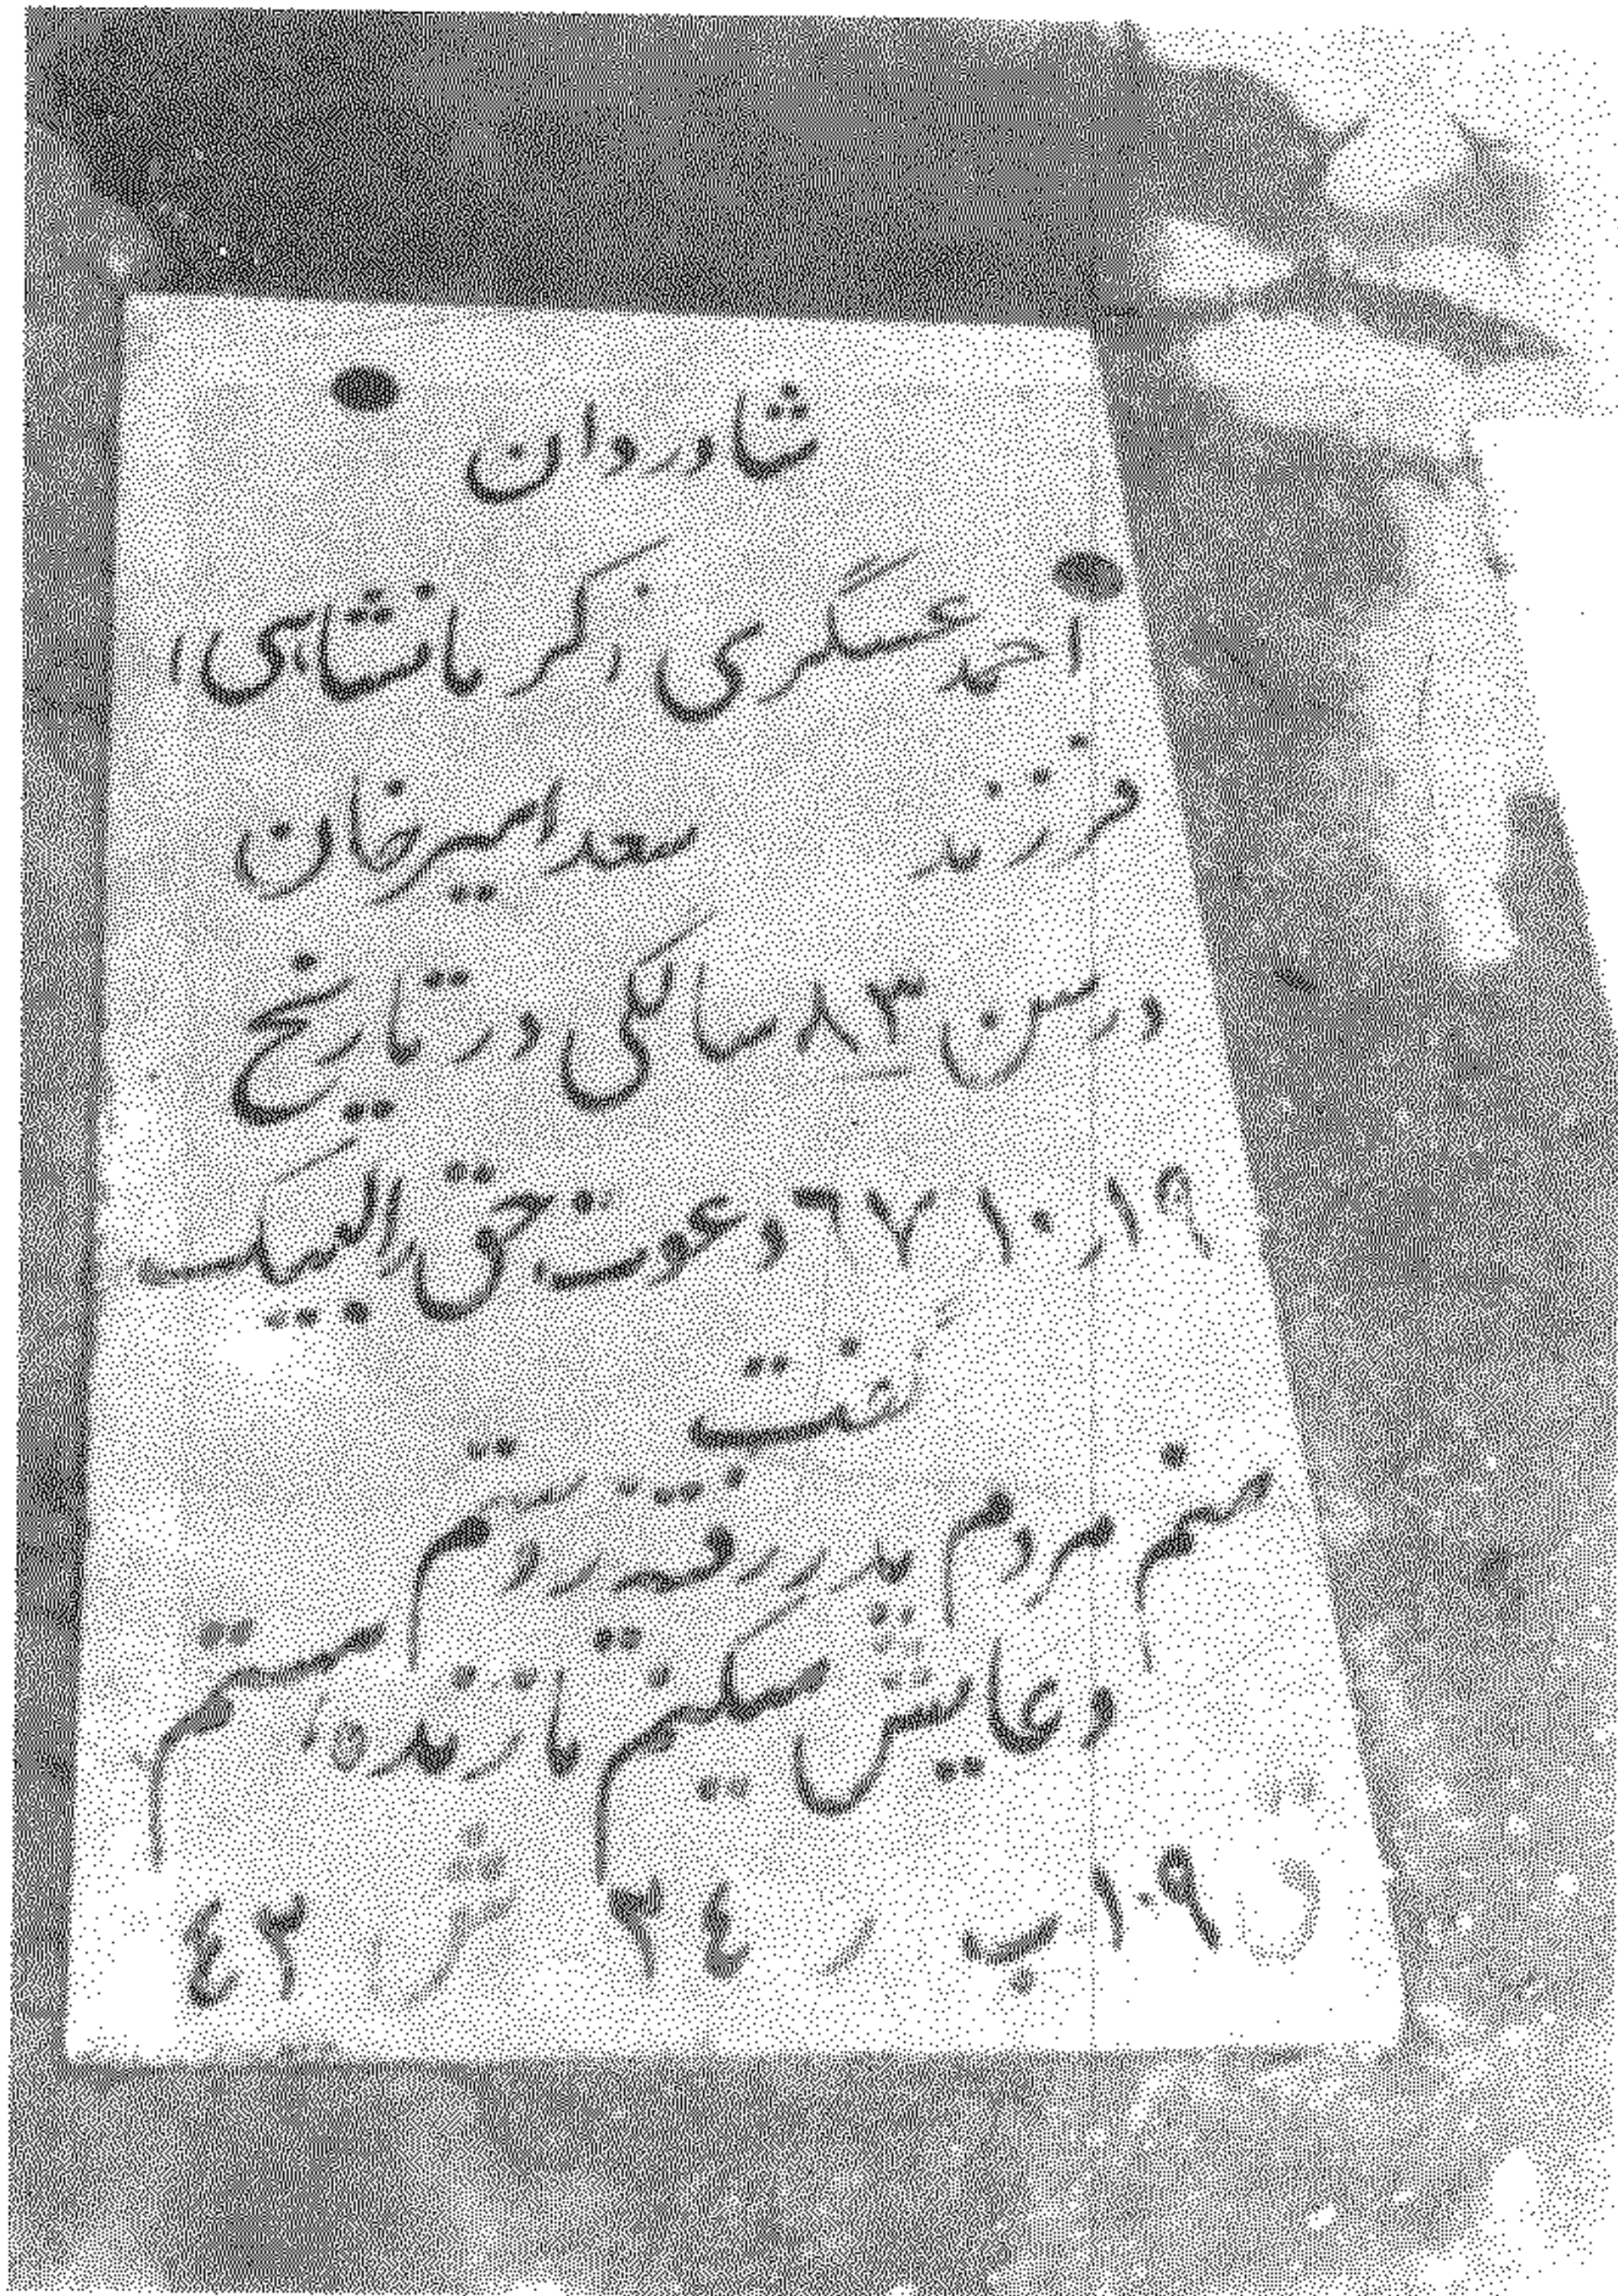 شادروان
احمد عسگری (کرمانشاهی)
فرزند سعد امیرخان
در سن ۸۳ سالگی در تاریخ
۱۹ر۱۰ر۶۷ دعوت حق را لبیک
گفت
منم مردم پدر رفت
دعایش میکنم
ق ۱۰۹ ب ر ۳۴ ش ۴۳